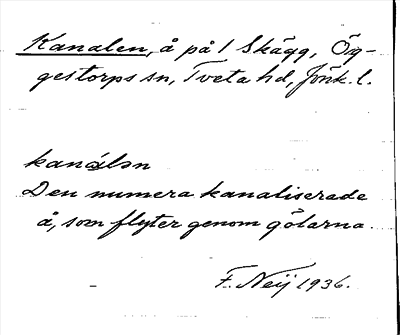 Kanalen, å på 1 Skägg, Ög-
gestorps sn, Tveta hd, Jönk. l.
kanálən
Den numera kanaliserade
å, som flyter genom gölarna.
F. Neij 1936.